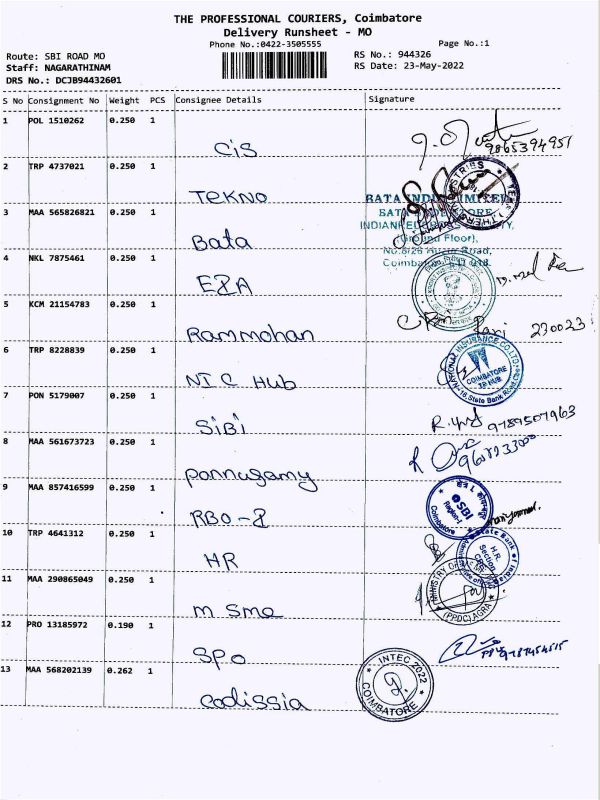 THE PROFESSIONAL COURIERS, Coimbatore
Delivery Runsheet - MO
Phone No.:0422-3505555 Page No.:1
Route: SBI ROAD MO RS No.: 944326
Staff: NAGARATHINAM RS Date: 23-May-2022
DRS No.: DCJB94432601
S No Consignment No Weight PCS Consignee Details Signature
1 POL 1510262 0.250 1 CiS 9865394951
2 TRP 4737021 0.250 1 TEKNO
BATA INDIA LIMITED
3 MAA 565826821 0.250 1 Bata
(Ground Floor),
4 NKL 7875461 0.250 1 EZA
5 KCM 21154783 0.250 1 Rammohan 230023
6 TRP 8228839 0.250 1 NIC Hub
NATIONAL INSURANCE CO.LTD
COIMBATORE
18, State Bank Road
7 PON 5179007 0.250 1 SiBi 9789507963
8 MAA 561673723 0.250 1 ponnusamy
9 MAA 857416599 0.250 1 RBO-2
SBI
Region-I
Coimbatore
10 TRP 4641312 0.250 1 HR
State Bank of India
H.R.
Section
11 MAA 290865049 0.250 1 m Sme
MINISTRY OF
(PPDC) AGRA
12 PRO 13185972 0.190 1 SPO
13 MAA 568202139 0.262 1 codissia
INTEC 2022
COIMBATORE